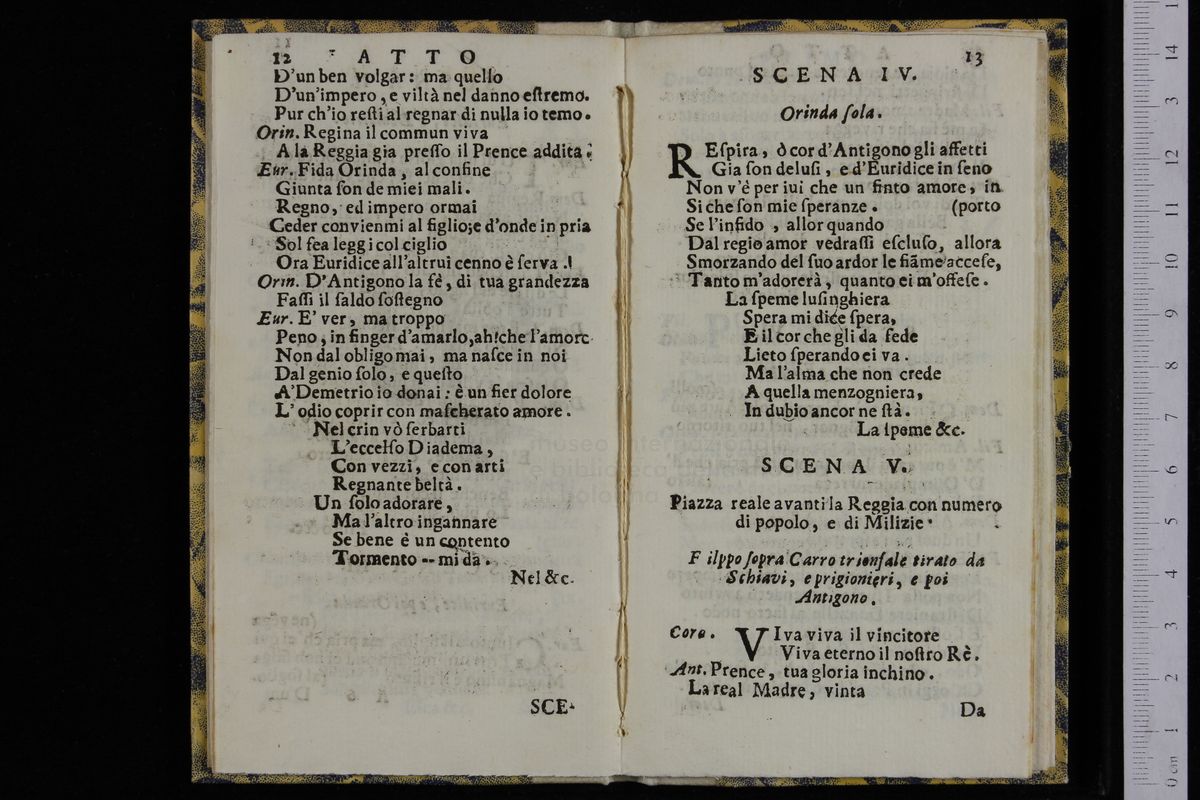 12 ATTO
D'un ben volgar: ma quello
D'un'impero, e viltà nel danno eſtremo.
Pur ch'io reſti al regnar di nulla io temo.
Orin. Regina il commun viva
A la Reggia gia preſſo il Prence addita.
Eur. Fida Orinda, al confine
Giunta ſon de miei mali.
Regno, ed impero ormai
Ceder convienmi al figlio;e d'onde in pria
Sol fea leggi col ciglio
Ora Euridice all'altrui cenno è ſerva.
Orin. D'Antigono la fè, di tua grandezza
Faſſi il ſaldo ſoſtegno
Eur. E' ver, ma troppo
Peno, in finger d'amarlo,ah!che l'amore
Non dal obligo mai, ma naſce in noi
Dal genio ſolo, e queſto
A'Demetrio io donai: è un fier dolore
L'odio coprir con maſcherato amore.
Nel crin vò ſerbarti
L'eccelſo Diadema,
Con vezzi, e con arti
Regnante beltà.
Un ſolo adorare,
Ma l'altro ingannare
Se bene è un contento
Tormento -- mi dà.
Nel &c.
SCE-
13
SCENA IV.
Orinda ſola.
REſpira, ò cor d'Antigono gli affetti
Gia ſon deluſi, e d'Euridice in ſeno
Non v'è per lui che un finto amore, in
Si che ſon mie ſperanze. (porto
Se l'infido, allor quando
Dal regio amor vedraſſi eſcluſo, allora
Smorzando del ſuo ardor le fiãme acceſe,
Tanto m'adorerà, quanto ei m'offeſe.
La ſpeme luſinghiera
Spera mi dice ſpera,
E il cor che gli da fede
Lieto ſperando ei va.
Ma l'alma che non crede
A quella menzogniera,
In dubio ancor ne ſtà.
La ſpeme &c.
SCENA V.
Piazza reale avanti la Reggia con numero
di popolo, e di Milizie.
Filppo ſopra Carro trionfale tirato da
Schiavi, e prigionieri, e poi
Antigono.
Coro. VIva viva il vincitore
Viva eterno il noſtro Rè.
Ant. Prence, tua gloria inchino.
La real Madre, vinta
Da